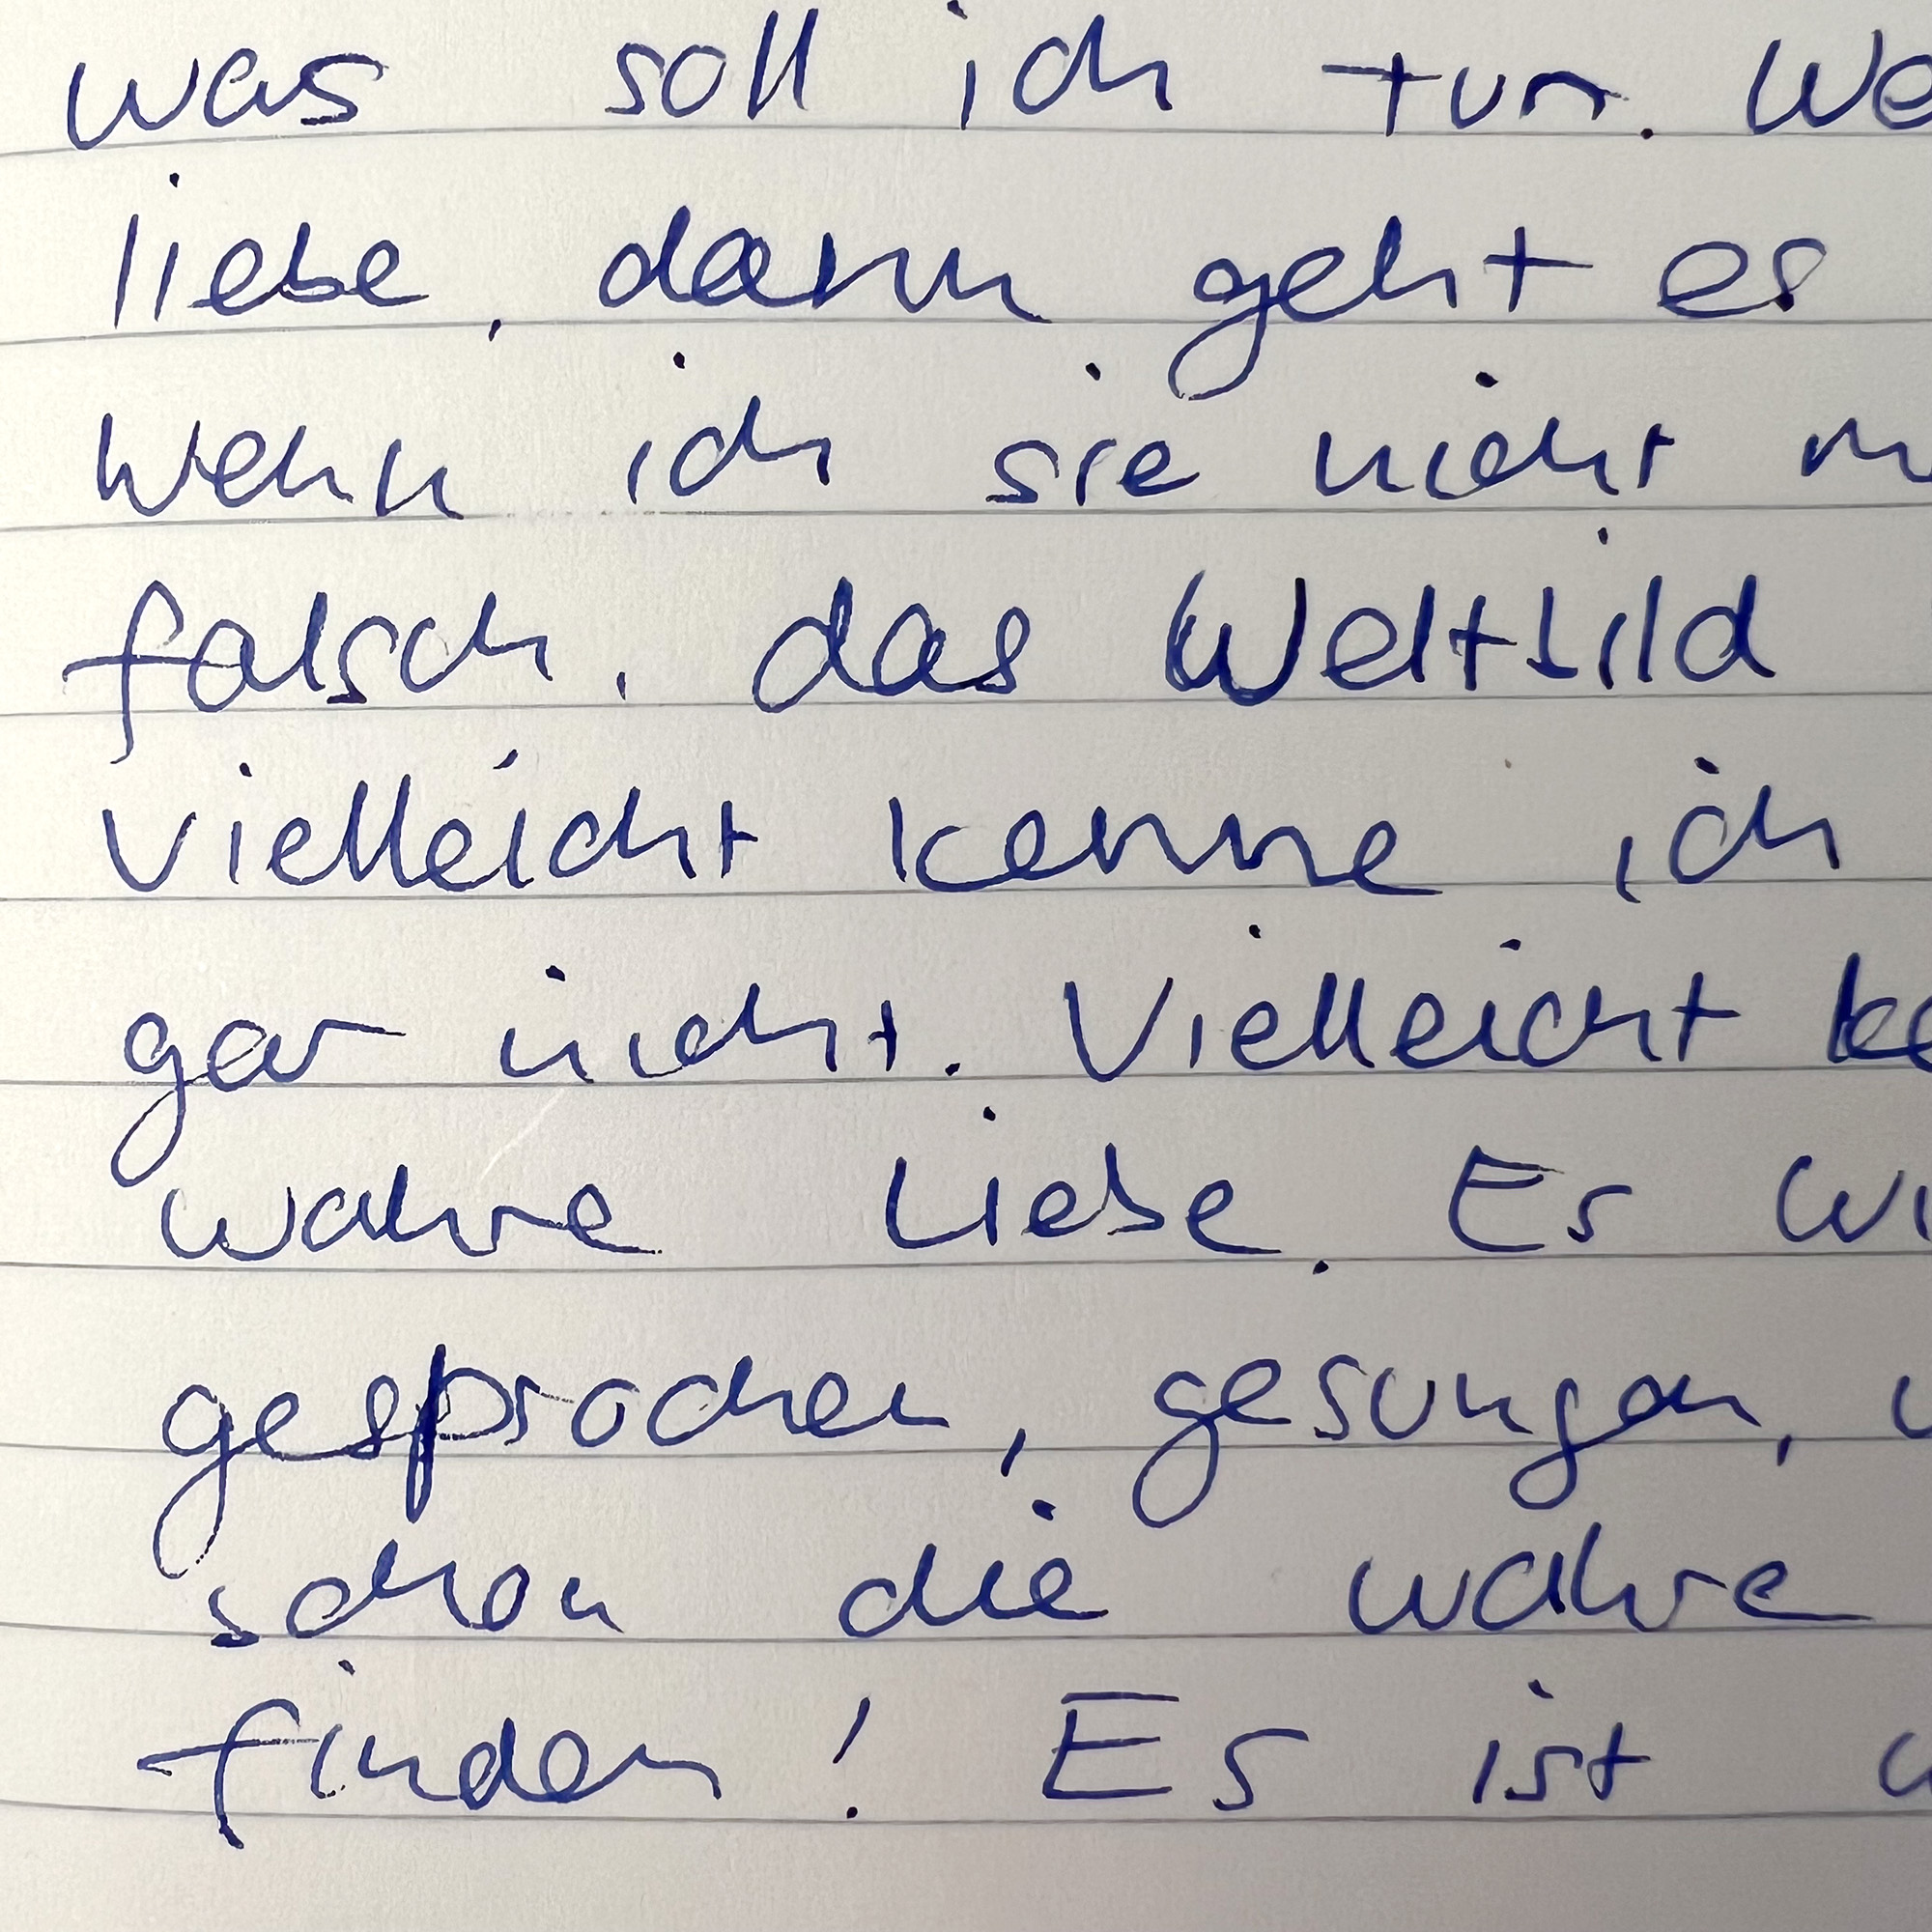 was soll ich tun. We
liebe, dann geht es
wenn ich sie nicht m
falsch, das Weltbild
vielleicht kenne ich
gar nicht. Vielleicht ke
wahre Liebe. Es wi
gesprochen, gesungen, u
schon die wahre
finden! Es ist